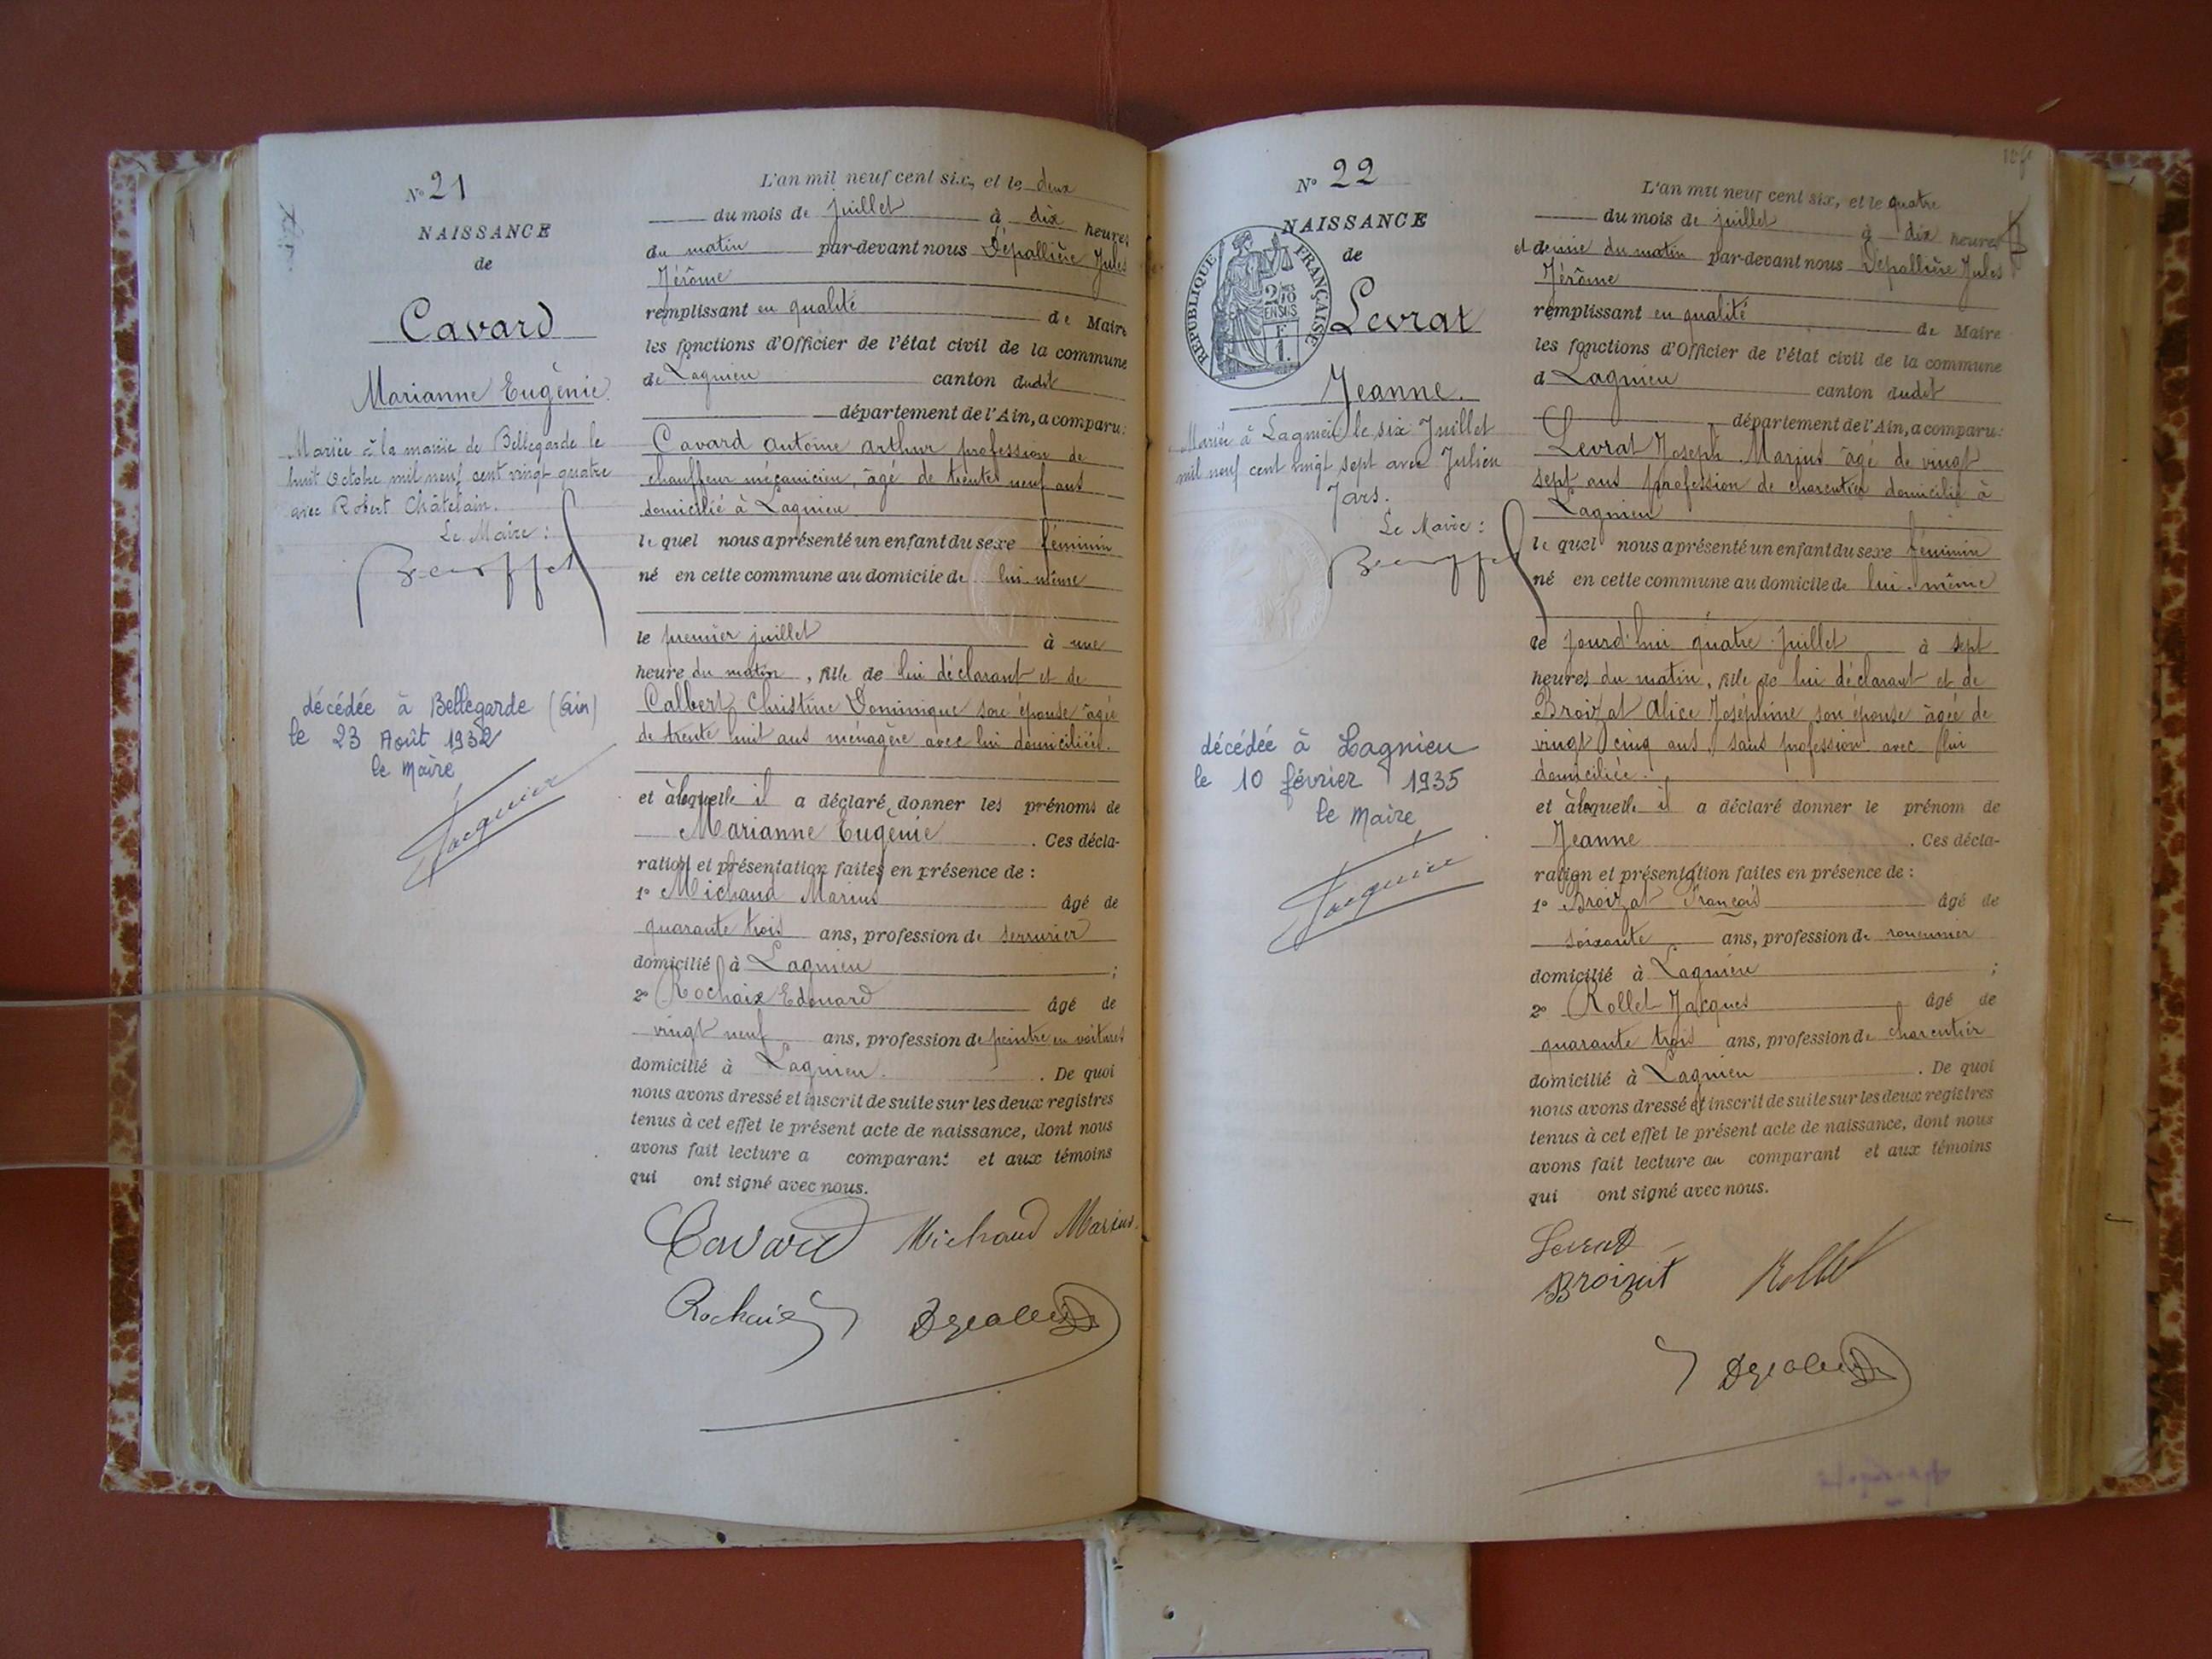 N° 21
NAISSANCE
de
Cavard
Marianne Eugénie
Mariée à la mairie de Bellegarde le
huit Octobre mil neuf cent vingt quatre
avec Robert Châtelain.
Le Maire :
décédée à Bellegarde (Ain)
le 23 Août 1932
le Maire
Jacquier
L'an mil neuf cent six, et le deux
du mois de juillet à dix heures
du matin par-devant nous Dépallière Jules
Jérôme
remplissant en qualité de Maire
les fonctions d'Officier de l'état civil de la commune
de Lagnieu canton dudit
département de l'Ain, a comparu :
Cavard Antoine Arthur profession de
chauffeur mécanicien, âgé de trente neuf ans
domicilié à Lagnieu
le quel nous a présenté un enfant du sexe féminin
né en cette commune au domicile de lui-même
le premier juillet à une
heure du matin, fille de lui déclarant et de
Calbert Christine Dominique son épouse âgée
de trente huit ans ménagère avec lui domiciliée.
et à laquelle il a déclaré donner les prénoms de
Marianne Eugénie. Ces décla-
ration et présentation faites en présence de :
1° Michaud Marius âgé de
quarante trois ans, profession de serrurier
domicilié à Lagnieu ;
2° Rochaix Edouard âgé de
vingt neuf ans, profession de peintre en voitures
domicilié à Lagnieu. De quoi
nous avons dressé et inscrit de suite sur les deux registres
tenus à cet effet le présent acte de naissance, dont nous
avons fait lecture a comparant et aux témoins
qui ont signé avec nous.
Cavard Michaud Marius
Rochaix
N° 22
NAISSANCE
de
RÉPUBLIQUE FRANÇAISE
2/10 EN SUS
F
1.
Levrat
Jeanne.
Mariée à Lagnieu le six Juillet
mil neuf cent vingt sept avec Julien
Jars.
Le Maire :
décédée à Lagnieu
le 10 février 1935
le Maire
Jacquier
L'an mil neuf cent six, et le quatre
du mois de juillet à dix heures
et demie du matin par-devant nous Dépallière Jules
Jérôme
remplissant en qualité de Maire
les fonctions d'Officier de l'état civil de la commune
d Lagnieu canton dudit
département de l'Ain, a comparu :
Levrat Joseph Marius âgé de vingt
sept ans profession de charentier domicilié à
Lagnieu
le quel nous a présenté un enfant du sexe féminin
né en cette commune au domicile de lui-même
ce jourd'hui quatre juillet à sept
heures du matin, fille de lui déclarant et de
Broizat Alice Joséphine son épouse âgée de
vingt cinq ans, sans profession avec lui
domiciliée.
et à laquelle il a déclaré donner le prénom de
Jeanne. Ces décla-
ration et présentation faites en présence de :
1° Broizat François âgé de
soixante ans, profession de
domicilié à Lagnieu ;
2° Rollet Jacques âgé de
quarante trois ans, profession de charentier
domicilié à Lagnieu. De quoi
nous avons dressé et inscrit de suite sur les deux registres
tenus à cet effet le présent acte de naissance, dont nous
avons fait lecture au comparant et aux témoins
qui ont signé avec nous.
Levrat
Broizat Rollet